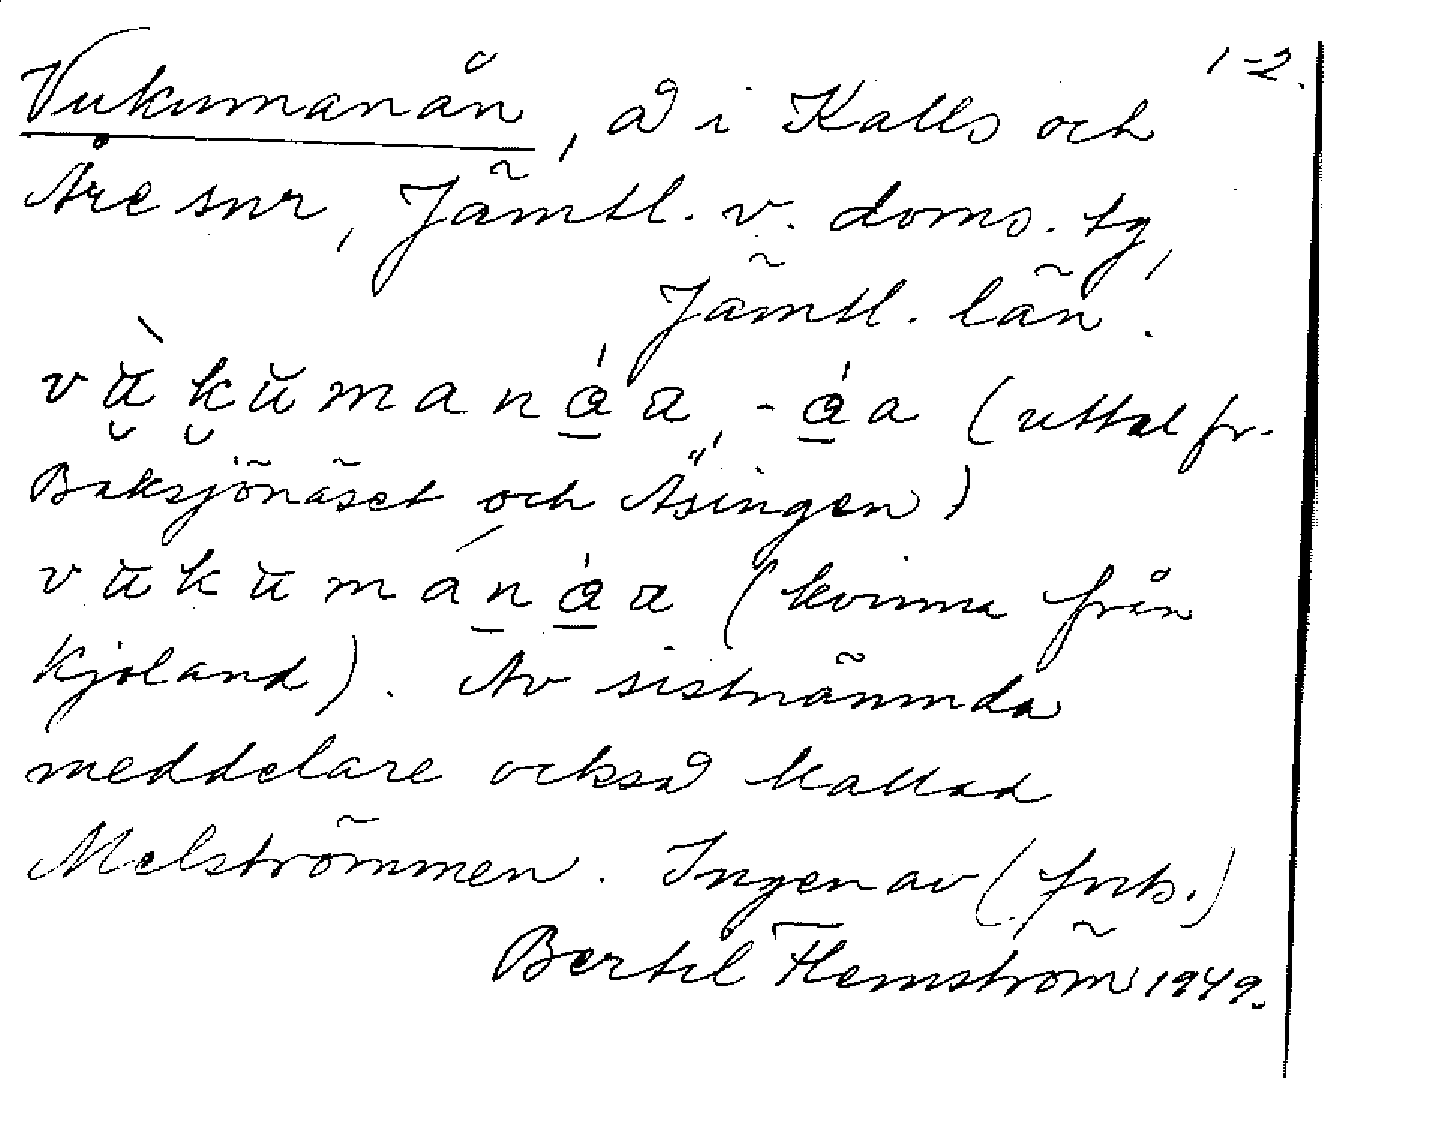 1-2.
Vukumanån, å i Kalls och
Åre snr, Jämtl. v. doms. tg,
Jämtl. län.
vùkŭmanáa, -áa (uttal fr.
Baksjönäset och Äsingen)
vŭkŭmánáa (kvinna från
Kjoland). Av sistnämnda
meddelare också kallad
Melströmmen. Ingen av (forts.)
Bertil Flemström 1949.